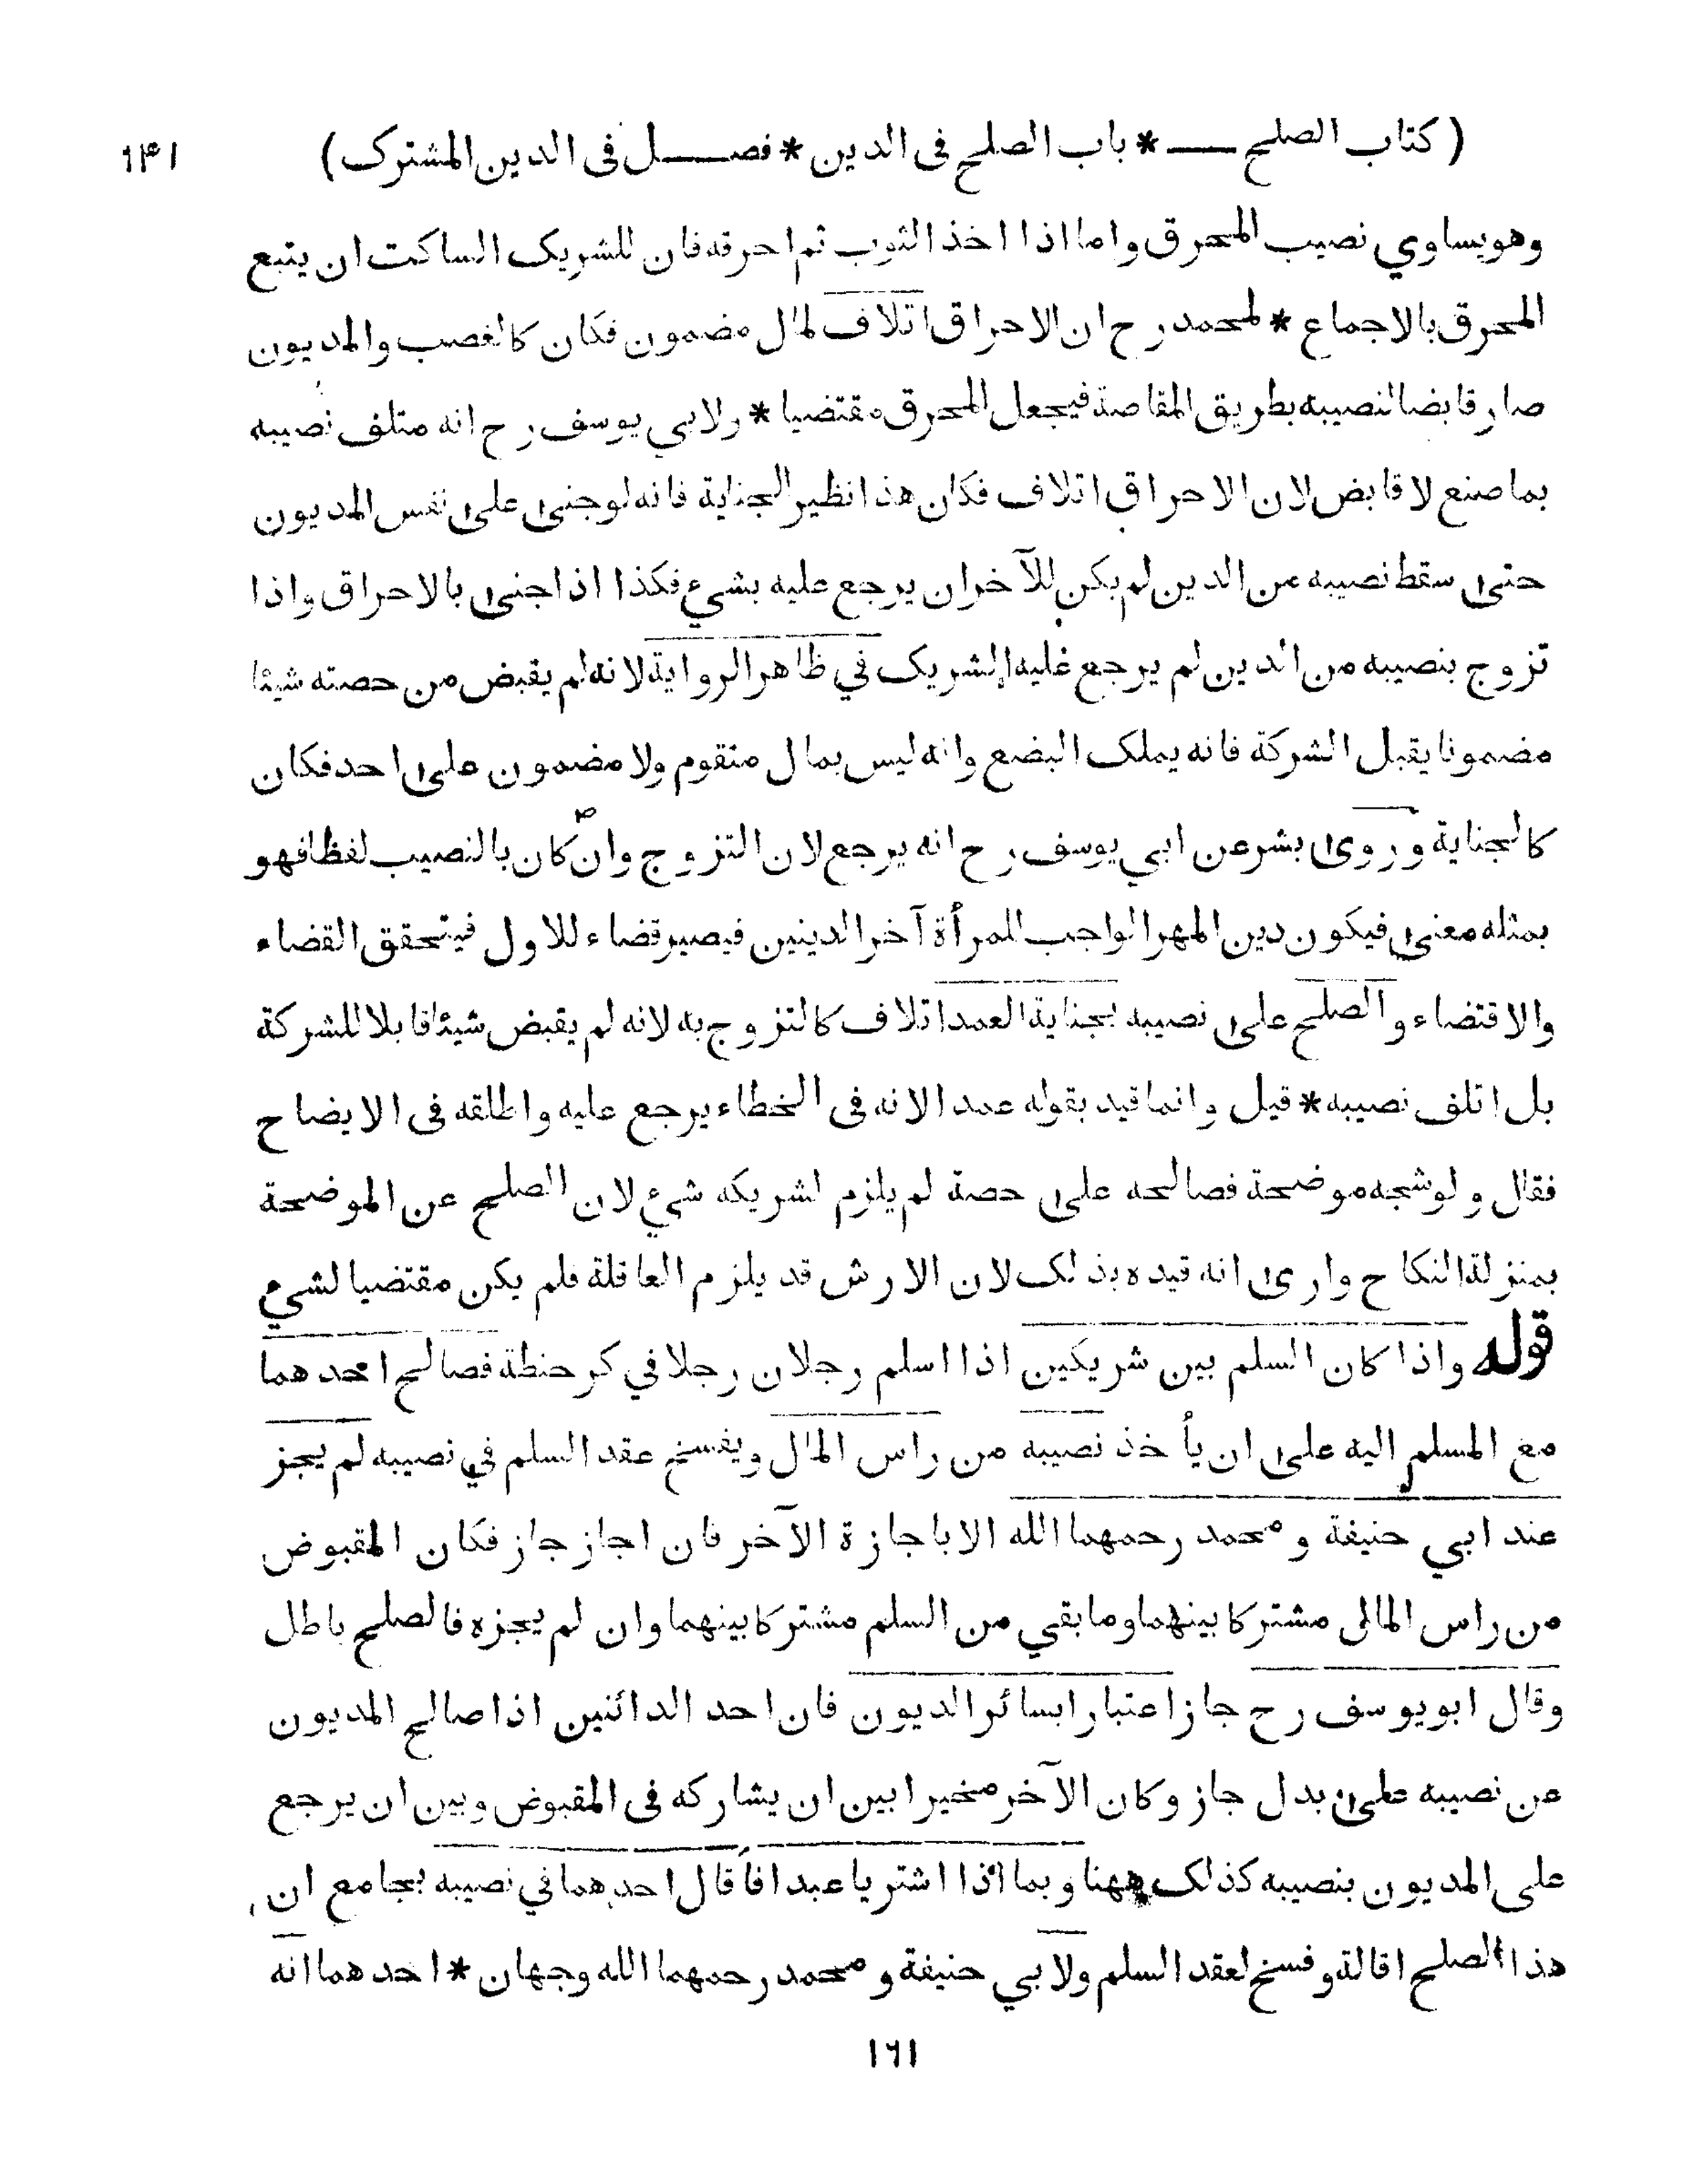 ( كتاب الصلح — * باب الصلح فى الدين * فصــل فى الدين المشترك ) ۱۴۱
وهو يساوي نصيب المحرق واما اذا اخذ الثوب ثم احرقه فان للشريك الساكت ان يتبع
المحرق بالاجماع * لمحمد رح ان الاحراق اتلاف لمال مضمون فكان كالغصب والمديون
صار قابضا لنصيبه بطريق المقاصة فيجعل المحرق مقتضيا * ولابي يوسف رح انه متلف نصيبه
بما صنع لا قابض لان الاحراق اتلاف فكان هذا نظير الجناية فانه لو جنى على نفس المديون
حتى سقط نصيبه من الدين لم يكن للآخر ان يرجع عليه بشيء فكذا اذا جنى بالاحراق واذا
تزوج بنصيبه من الدين لم يرجع عليه الشريك في ظاهر الرواية لانه لم يقبض من حصته شيئا
مضمونا يقبل الشركة فانه يملك البضع وانه ليس بمال متقوم ولا مضمون على احد فكان
كالجناية وروى بشر عن ابي يوسف رح انه يرجع لان التزوج وان كان بالنصيب لفظا فهو
بمثله معنى فيكون دين المهر الواجب للمرأة آخر الدينين فيصير قضاء للاول فيتحقق القضاء
والاقتضاء والصلح على نصيبه بجناية العمد اتلاف كالتزوج به لانه لم يقبض شيئا قابلا للشركة
بل اتلف نصيبه * قيل وانما قيد بقوله عمدا لانه فى الخطاء يرجع عليه واطلقه فى الايضاح
فقال ولو شجه موضحة فصالحه على حصة لم يلزم لشريكه شيء لان الصلح عن الموضحة
بمنزلة النكاح وارى انه قيده بذلك لان الارش قد يلزم العاقلة فلم يكن مقتضيا لشيء
قوله واذا كان السلم بين شريكين اذا اسلم رجلان رجلا في كر حنطة فصالح احدهما
مع المسلم اليه على ان يأخذ نصيبه من راس المال ويفسخ عقد السلم في نصيبه لم يجز
عند ابي حنيفة ومحمد رحمهما الله الا باجازة الآخر فان اجاز جاز فكان المقبوض
من راس المال مشتركا بينهما وما بقي من السلم مشتركا بينهما وان لم يجزه فالصلح باطل
وقال ابو يوسف رح جاز اعتبارا بسائر الديون فان احد الدائنين اذا صالح المديون
عن نصيبه على بدل جاز وكان الآخر مخيرا بين ان يشاركه فى المقبوض وبين ان يرجع
على المديون بنصيبه كذلك ههنا وبما اذا اشتريا عبدا فأقال احدهما في نصيبه بجامع ان
هذا الصلح اقالة وفسخ لعقد السلم ولابي حنيفة ومحمد رحمهما الله وجهان * احدهما انه
۱۶۱